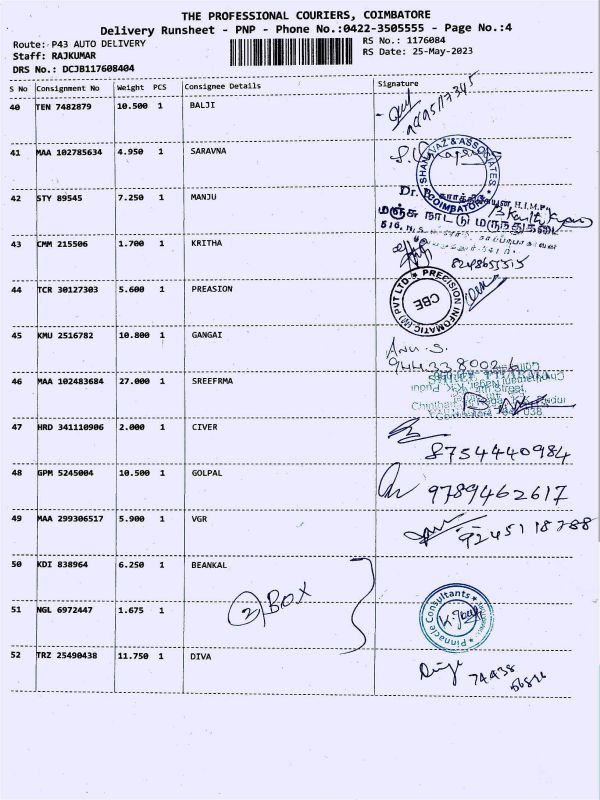 THE PROFESSIONAL COURIERS, COIMBATORE
Delivery Runsheet - PNP - Phone No.:0422-3505555 - Page No.:4
Route: P43 AUTO DELIVERY
RS No.: 1176084
Staff: RAJKUMAR
RS Date: 25-May-2023
DRS No.: DCJB117608404
S No Consignment No Weight PCS Consignee Details Signature
40 TEN 7482879 10.500 1 BALJI
41 MAA 102785634 4.950 1 SARAVNA
SHANAVAZ & ASSOCIATES COIMBATORE
42 STY 89545 7.250 1 MANJU
Dr.
மஞ்சு நாட்டு மருந்துகடை
43 CMM 215506 1.700 1 KRITHA
44 TCR 30127303 5.600 1 PREASION
PRECISION INFOMATIC (M) PVT LTD CBE
45 KMU 2516782 10.800 1 GANGAI
Anu. S.
46 MAA 102483684 27.000 1 SREEFRMA
47 HRD 341110906 2.000 1 CIVER
8754440984
48 GPM 5245004 10.500 1 GOLPAL
9789462617
49 MAA 299306517 5.900 1 VGR
9245118788
50 KDI 838964 6.250 1 BEANKAL
2) BOX
51 NGL 6972447 1.675 1
Pinnacle Consultants
52 TRZ 25490438 11.750 1 DIVA